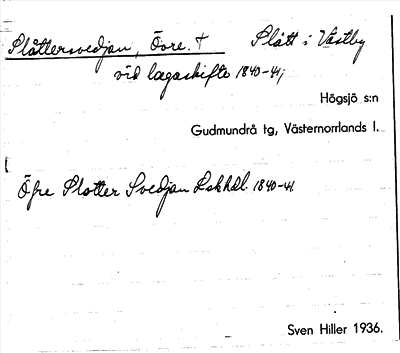 Plåttersvedjan, Övre. † Plätt i Västby
vid lagaskifte 1840-41;
Högsjö s:n
Gudmundrå tg, Västernorrlands l.
Öfre Plotter Svedjan Lskhdl. 1840-41
Sven Hiller 1936.